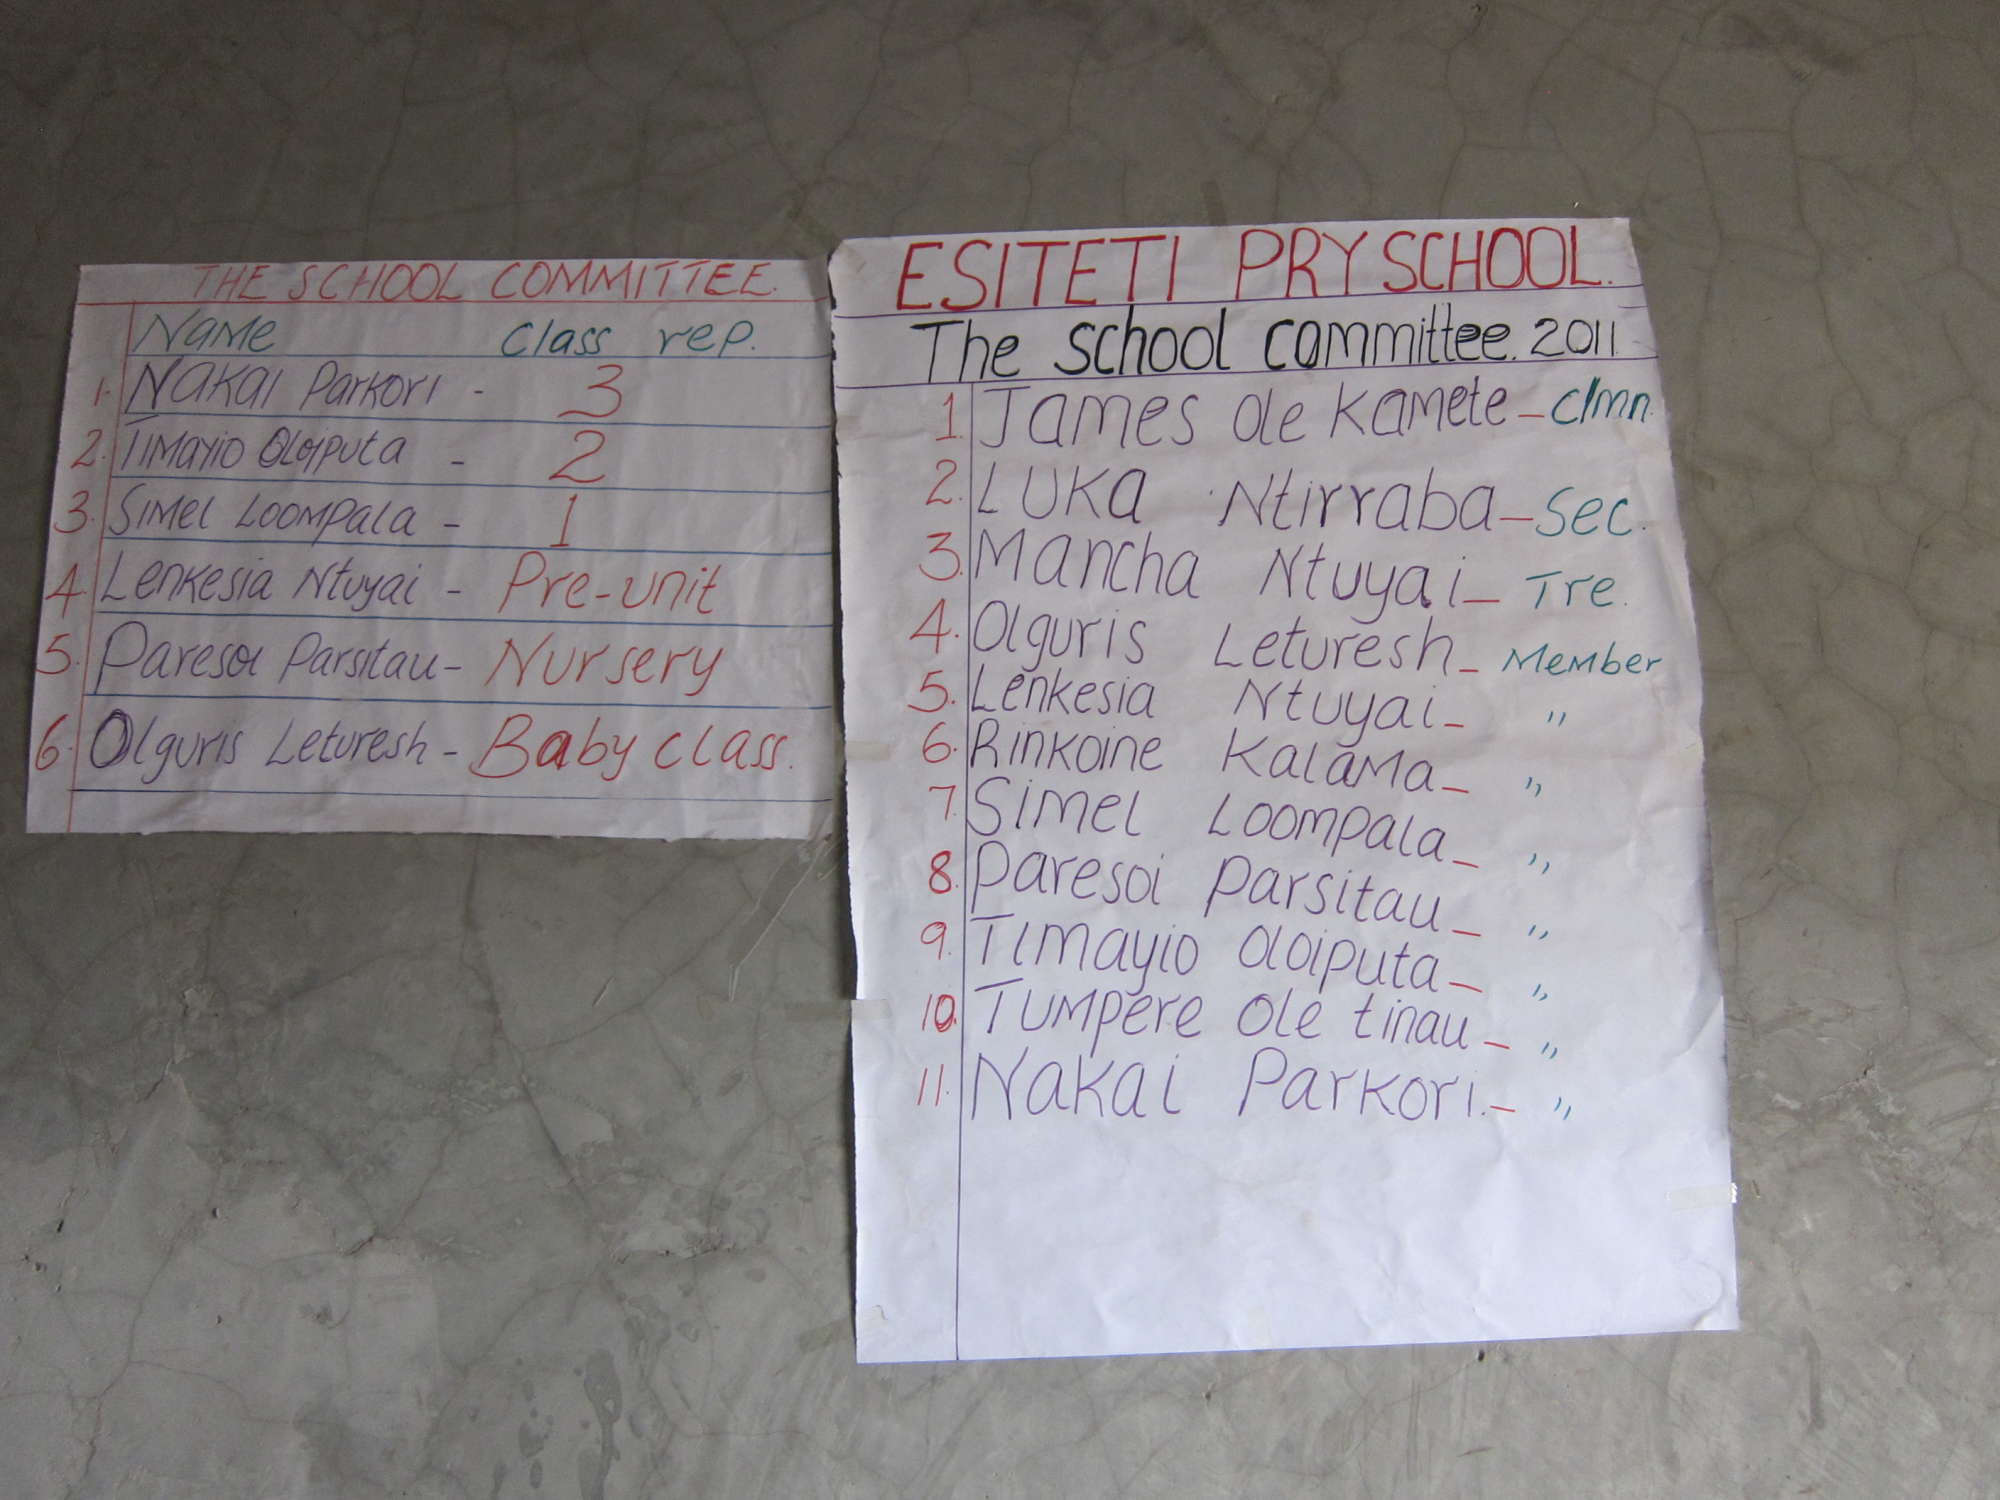 THE SCHOOL COMMITTEE.
Name Class rep.
1. Nakai Parkori - 3
2. Timayio Oloiputa - 2
3. Simel Loompala - 1
4. Lenkesia Ntuyai - Pre-unit
5. Paresoi Parsitau - Nursery
6. Olguris Leturesh - Baby class.
ESITETI PRY SCHOOL.
The school committee. 2011
1. James Ole Kamete - C/mn.
2. Luka Ntirraba - Sec.
3. Mancha Ntuyai - Tre.
4. Olguris Leturesh - Member
5. Lenkesia Ntuyai - "
6. Rinkoine Kalama - "
7. Simel Loompala - "
8. Paresoi Parsitau - "
9. Timayio Oloiputa - "
10. Tumpere Ole tinau - "
11. Nakai Parkori. - "